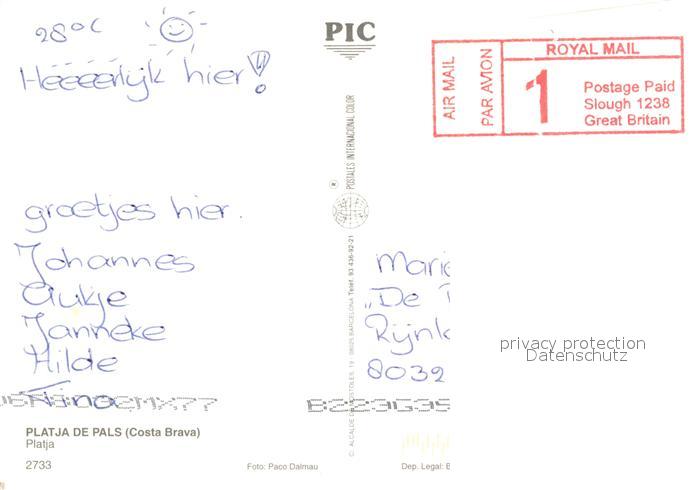 28°C
Héééérlijk hier!
groetjes hier.
Johannes
Aukje
Janneke
Hilde
Tino
PLATJA DE PALS (Costa Brava)
Platja
2733
Foto: Paco Dalmau
Dep. Legal: B
PIC
POSTALES INTERNACIONAL COLOR
®
BARCELONA Telef. 93 436-92-21
AIR MAIL
PAR AVION
ROYAL MAIL
1
Postage Paid
Slough 1238
Great Britain
Marie
„De
Rijnk
8032
privacy protection
Datenschutz